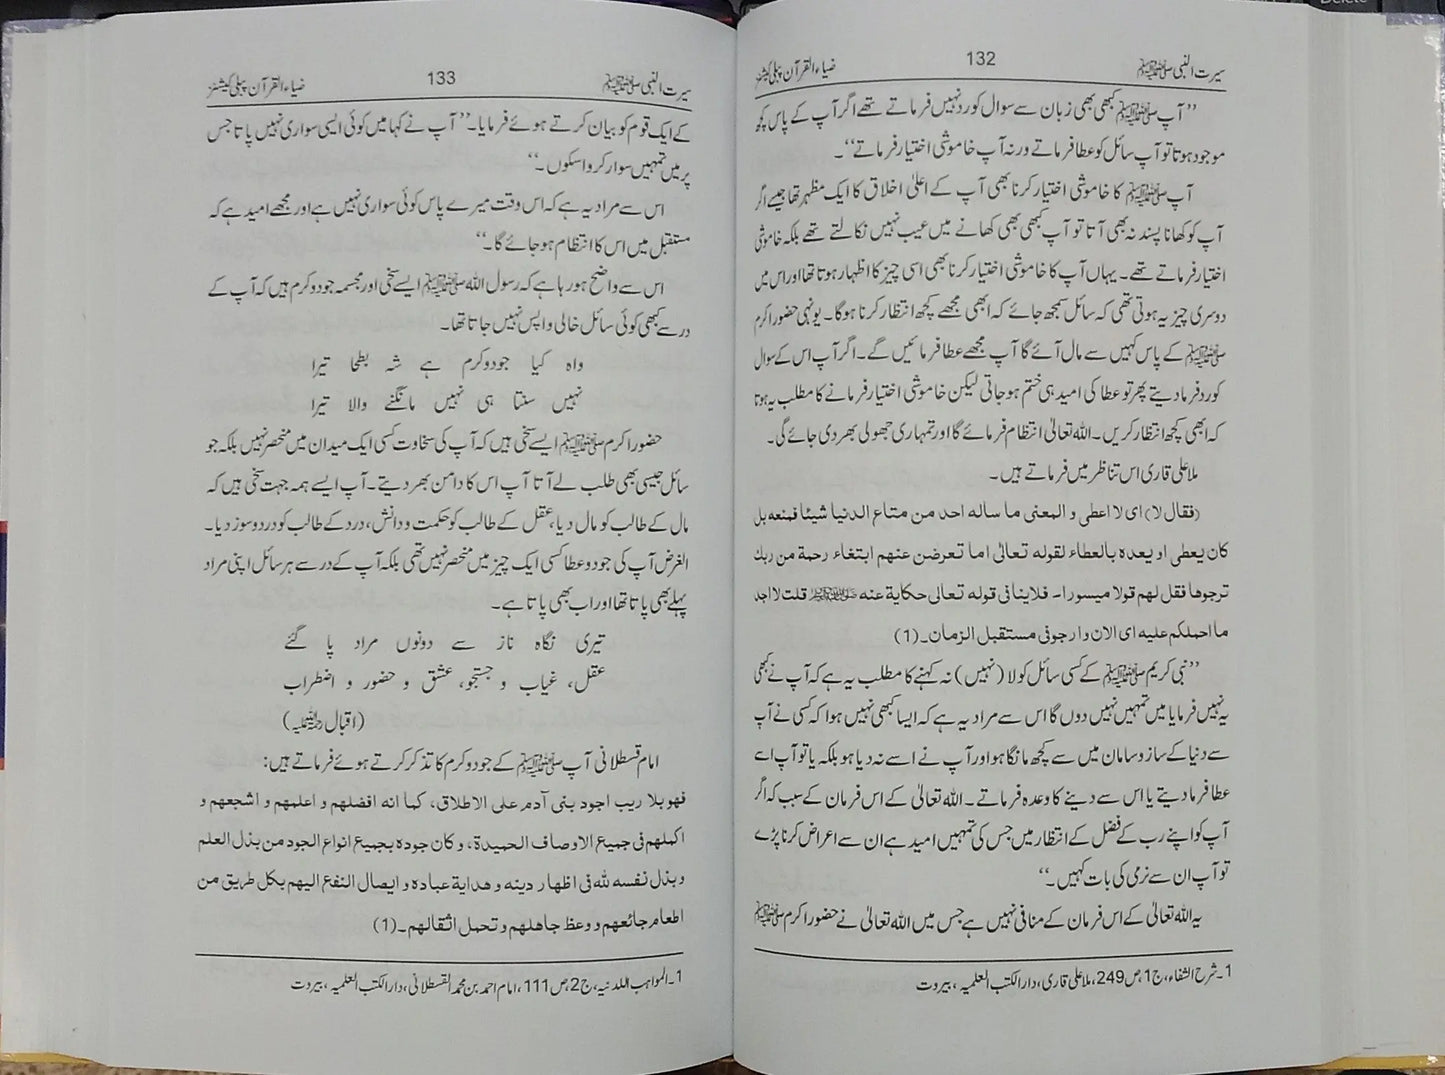 سیرت النبی ﷺ 132 ضیاء القرآن پبلی کیشنز
’’آپ ﷺ کبھی بھی زبان سے سوال کو رد نہیں فرماتے تھے اگر آپ کے پاس کچھ
موجود ہوتا تو آپ سائل کو عطا فرماتے ورنہ آپ خاموشی اختیار فرماتے‘‘۔
آپ ﷺ کا خاموشی اختیار کرنا بھی آپ کے اعلیٰ اخلاق کا ایک مظہر تھا جیسے اگر
آپ کو کھانا پسند نہ بھی آتا تو آپ کبھی بھی کھانے میں عیب نہیں نکالتے تھے بلکہ خاموشی
اختیار فرماتے تھے۔ یہاں آپ کا خاموشی اختیار کرنا بھی اسی چیز کا اظہار ہوتا تھا اور اس میں
دوسری چیز یہ ہوتی تھی کہ سائل سمجھ جائے کہ ابھی مجھے کچھ انتظار کرنا ہوگا۔ یونہی حضور اکرم
ﷺ کے پاس کہیں سے مال آئے گا آپ مجھے عطا فرمائیں گے۔ اگر آپ اس کے سوال
کو رد فرما دیتے پھر تو عطا کی امید ہی ختم ہو جاتی لیکن خاموشی اختیار فرمانے کا مطلب یہ ہوتا
کہ ابھی کچھ انتظار کریں۔ اللہ تعالیٰ انتظام فرمائے گا اور تمہاری جھولی بھر دی جائے گی۔
ملا علی قاری اس تناظر میں فرماتے ہیں۔
(فقال لا) ای لا اعطی و المعنی ما سالہ احد من متاع الدنیا شیئا فمنعہ بل
کان یعطی او یعدہ بالعطاء لقولہ تعالیٰ اما تعرضن عنهم ابتغاء رحمة من ربك
ترجوها فقل لهم قولا میسورا۔ فلاینافی قولہ تعالی حکایة عنہ ﷺ قلت لا اجد
ما احملکم علیہ ای الان وارجو فی مستقبل الزمان۔(1)
’’نبی کریم ﷺ کے کسی سائل کو لا (نہیں) نہ کہنے کا مطلب یہ ہے کہ آپ نے کبھی
یہ نہیں فرمایا میں تمہیں نہیں دوں گا اس سے مراد یہ ہے کہ ایسا کبھی نہیں ہوا کہ کسی نے آپ
سے دنیا کے ساز و سامان میں سے کچھ مانگا ہو اور آپ نے اسے نہ دیا ہو بلکہ یا تو آپ اسے
عطا فرما دیتے یا اس سے دینے کا وعدہ فرماتے۔ اللہ تعالیٰ کے اس فرمان کے سبب کہ اگر
آپ کو اپنے رب کے فضل کے انتظار میں جس کی تمہیں امید ہے ان سے اعراض کرنا پڑے
تو آپ ان سے نرمی کی بات کہیں۔‘‘
یہ اللہ تعالیٰ کے اس فرمان کے منافی نہیں ہے جس میں اللہ تعالیٰ نے حضور اکرم ﷺ
1۔ شرح الشفاء، ج1، ص249، ملا علی قاری، دارالکتب العلمیہ، بیروت
سیرت النبی ﷺ 133 ضیاء القرآن پبلی کیشنز
کے ایک قوم کو بیان کرتے ہوئے فرمایا۔’’آپ نے کہا میں کوئی ایسی سواری نہیں پاتا جس
پر میں تمہیں سوار کروا سکوں۔‘‘
اس سے مراد یہ ہے کہ اس وقت میرے پاس کوئی سواری نہیں ہے اور مجھے امید ہے کہ
مستقبل میں اس کا انتظام ہو جائے گا۔‘‘
اس سے واضح ہو رہا ہے کہ رسول اللہ ﷺ ایسے سخی اور مجسمہ جود و کرم ہیں کہ آپ کے
در سے کبھی کوئی سائل خالی واپس نہیں جاتا تھا۔
واہ کیا جود و کرم ہے شہ بطحا تیرا
نہیں سنتا ہی نہیں مانگنے والا تیرا
حضور اکرم ﷺ ایسے سخی ہیں کہ آپ کی سخاوت کسی ایک میدان میں منحصر نہیں بلکہ جو
سائل جیسی بھی طلب لے آتا آپ اس کا دامن بھر دیتے۔ آپ ایسے ہمہ جہت سخی ہیں کہ
مال کے طالب کو مال دیا، عقل کے طالب کو حکمت و دانش، درد کے طالب کو درد و سوز دیا۔
الغرض آپ کی جود و عطا کسی ایک چیز میں منحصر نہیں تھی بلکہ آپ کے در سے ہر سائل اپنی مراد
پہلے بھی پاتا تھا اور اب بھی پاتا ہے۔
تیری نگاہ ناز سے دونوں مراد پا گئے
عقل، غیاب و جستجو، عشق و حضور و اضطراب
(اقبال رحمۃ اللہ علیہ)
امام قسطلانی آپ ﷺ کے جود و کرم کا تذکر کرتے ہوئے فرماتے ہیں:
فهو بلا ریب اجود بنی آدم علی الاطلاق، کما انہ افضلهم و اعلمهم و اشجعهم و
اکملهم فی جمیع الاوصاف الحمیدة، و کان جودہ بجمیع انواع الجود من بذل العلم
و بذل نفسہ للہ فی اظهار دینہ و هدایة عبادہ و ایصال النفع الیهم بکل طریق من
اطعام جائعهم و وعظ جاهلهم و تحمل اثقالهم۔(1)
1۔ المواہب اللدنیہ، ج2، ص111، امام احمد بن محمد القسطلانی، دارالکتب العلمیہ، بیروت